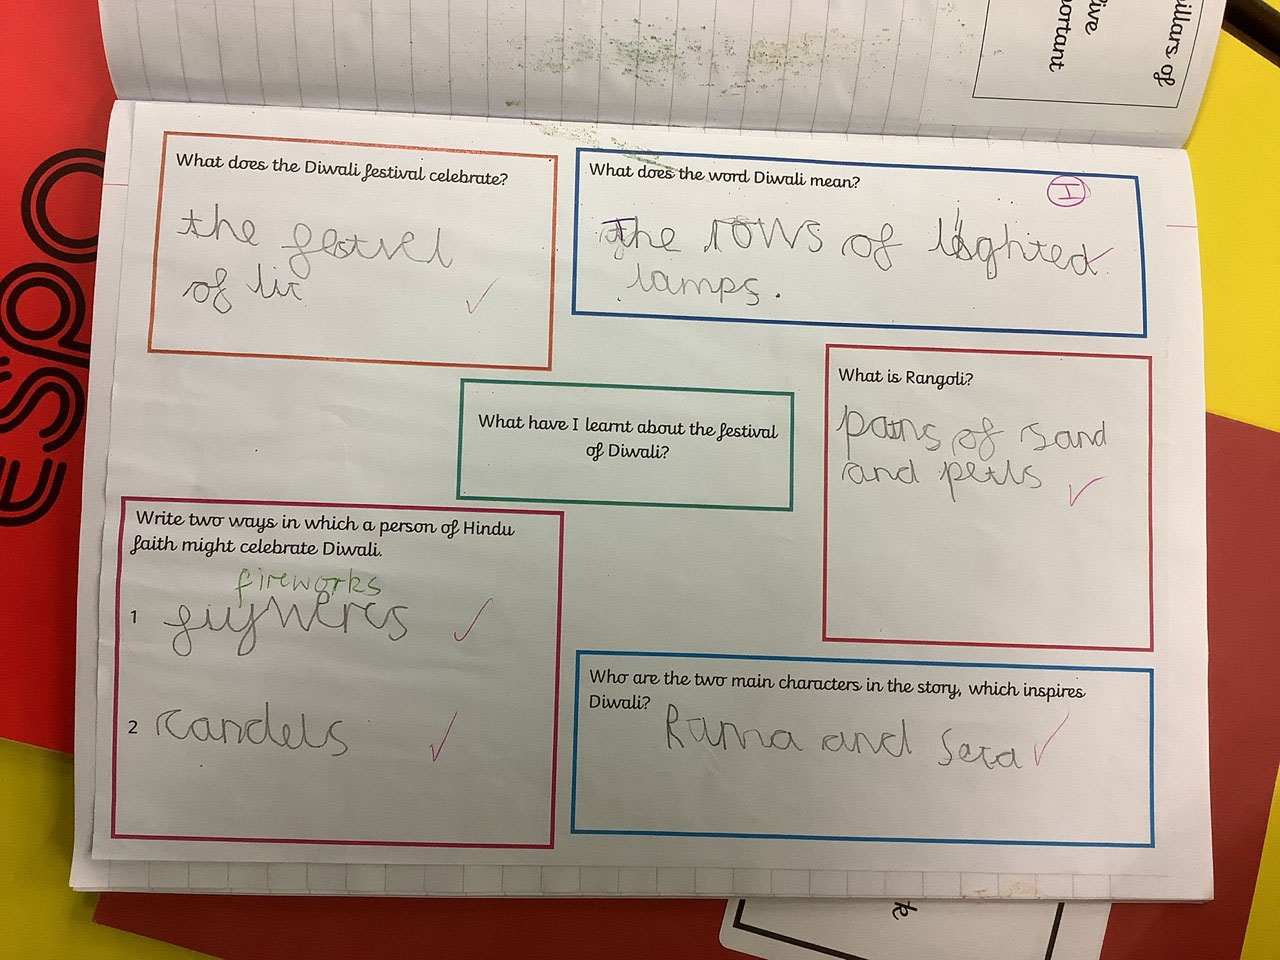 illars of
ive
portant
ESPO
What does the Diwali festival celebrate?
the festvel
of lit
What does the word Diwali mean?
H
The rows of lighted
lamps.
What is Rangoli?
patns of sand
and petls
What have I learnt about the festival
of Diwali?
Write two ways in which a person of Hindu
faith might celebrate Diwali.
fireworks
1
2 candels
Who are the two main characters in the story, which inspires
Diwali?
Rama and Seta
k